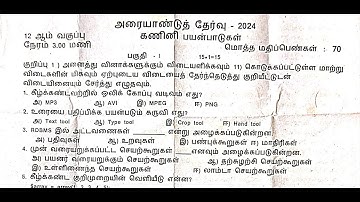 அரையாண்டுத் தேர்வு - 2024
12 ஆம் வகுப்பு கணினி பயன்பாடுகள்
நேரம் 3.00 மணி மொத்த மதிப்பெண்கள் : 70
பகுதி - I 15×1=15
குறிப்பு 1) அனைத்து வினாக்களுக்கும் விடையளிக்கவும் 11) கொடுக்கப்பட்டுள்ள மாற்று
விடைகளின் மிகவும் ஏற்புடைய விடையைத் தேர்ந்தெடுத்து குறியீட்டுடன்
விடையினையும் சேர்த்து எழுதவும்.
1. கீழ்க்கண்டவற்றில் ஒலிக் கோப்பு வடிவம் எது?
அ) MP3 ஆ) AVI இ) MPEG ஈ) PNG
2. உரையை பதிப்பிக்க பயன்படும் கருவி எது?
அ) Text tool ஆ) Type tool இ) Crop tool ஈ) Hand tool
3. RDBMS இல் அட்டவணைகள் என்று அழைக்கப்படுகின்றன.
அ) பதிவுகள் ஆ) உறவுகள் இ) பண்புக்கூறுகள் ஈ) மாதிரிகள்
4. முன் வரையறுக்கப்பட்ட செயற்கூறுகள் எனவும் அழைக்கப்படுகின்றன.
அ) பயனர் வரையறுக்கும் செயற்கூறுகள் ஆ) தற்சுழற்சி செயற்கூறுகள்
இ) உள்ளிணைந்த செயற்கூறுகள் ஈ) லாம்டா செயற்கூறுகள்
5. கீழ்க்கண்ட குறிமுறையின் வெளியீடு என்ன?